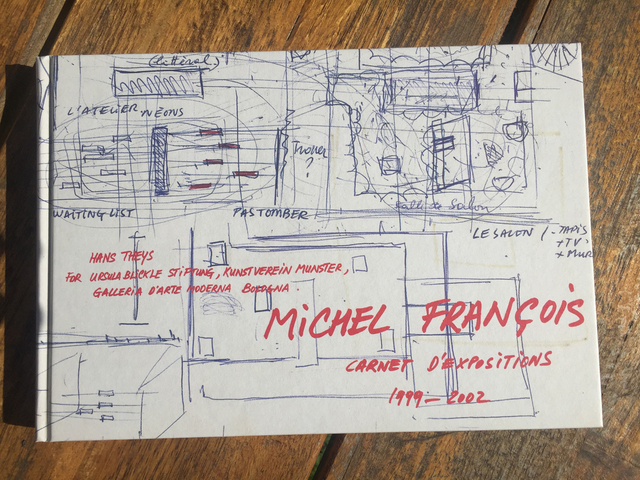 (littéral)
L'ATELIER NÉONS
WAITING LIST
PASTOMBER
LE SALON / - TAPIS
+ TV
+ MUR
HANS THEYS
FOR URSULA BLICKLE STIFTUNG, KUNSTVEREIN MUNSTER,
GALLERIA D'ARTE MODERNA BOLOGNA.
MICHEL FRANÇOIS
CARNET D'EXPOSITIONS
1999 - 2002